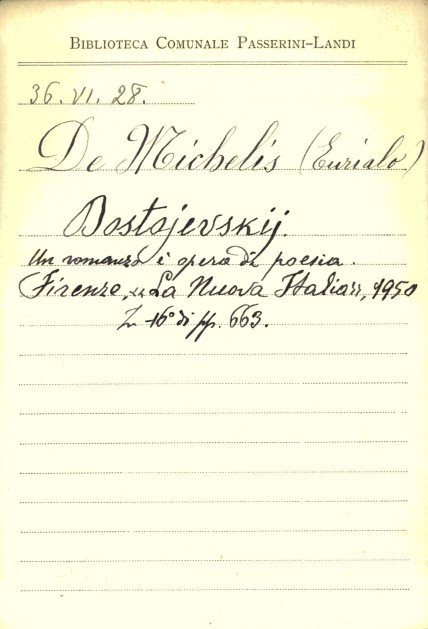 BIBLIOTECA COMUNALE PASSERINI-LANDI
36. VI. 28.
De Michelis (Eurialo)
Dostojevskij.
Un romanzo è opera di poesia.
Firenze, "La Nuova Italia", 1950
In 16° di pp. 663.